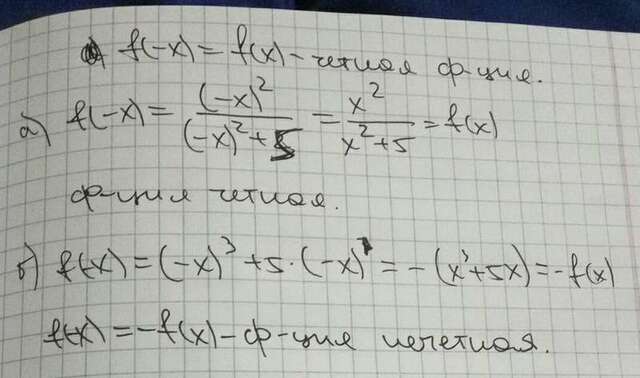 f(-x) = f(x) - четная ф-ция.
а) f(-x) = (-x)²/((-x)²+5) = x²/(x²+5) = f(x)
ф-ция четная.
б) f(-x) = (-x)³+5·(-x)¹ = -(x³+5x) = -f(x)
f(-x) = -f(x) - ф-ция нечетная.